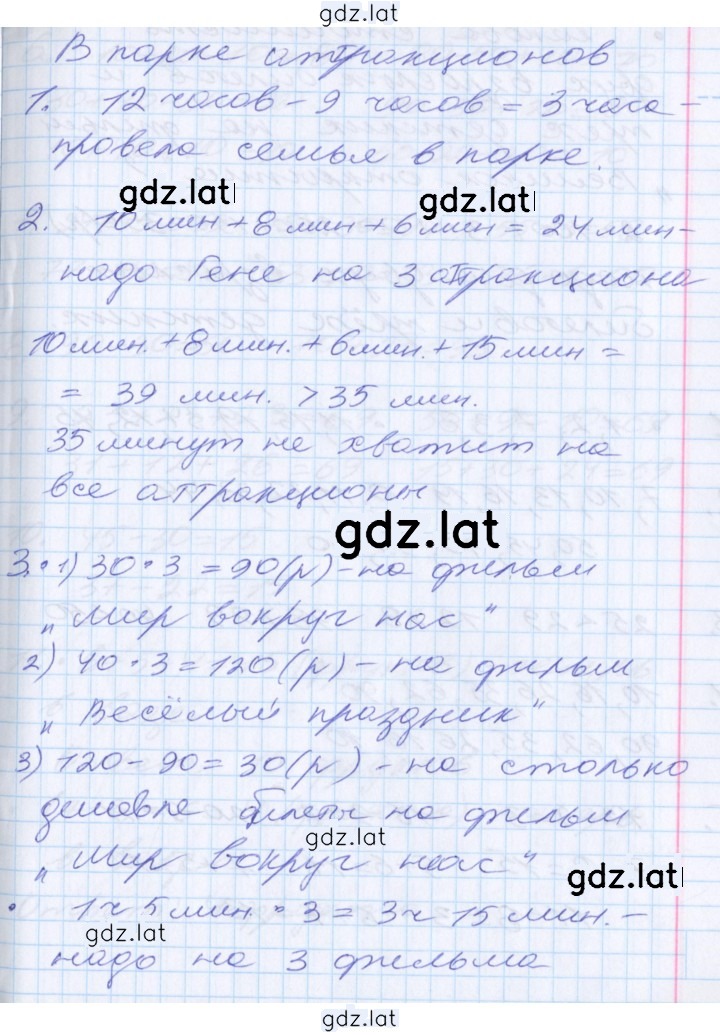 gdz.lat
В парке аттракционов
1. 12 часов - 9 часов = 3 часа -
провела семья в парке.
gdz.lat
gdz.lat
2. 10 мин + 8 мин + 6 мин = 24 мин -
надо Гене на 3 аттракциона
10 мин. + 8 мин. + 6 мин. + 15 мин =
= 39 мин. > 35 мин.
35 минут не хватит на
все аттракционы
gdz.lat
3. 1) 30 · 3 = 90 (р) - на фильм
„Мир вокруг нас“
2) 40 · 3 = 120 (р) - на фильм
„Весёлый праздник“
3) 120 - 90 = 30 (р) - на столько
дешевле билеты на фильм
gdz.lat
„Мир вокруг нас“
gdz.lat
· 1 ч 5 мин. · 3 = 3 ч 15 мин. -
gdz.lat
надо на 3 фильма
gdz.lat